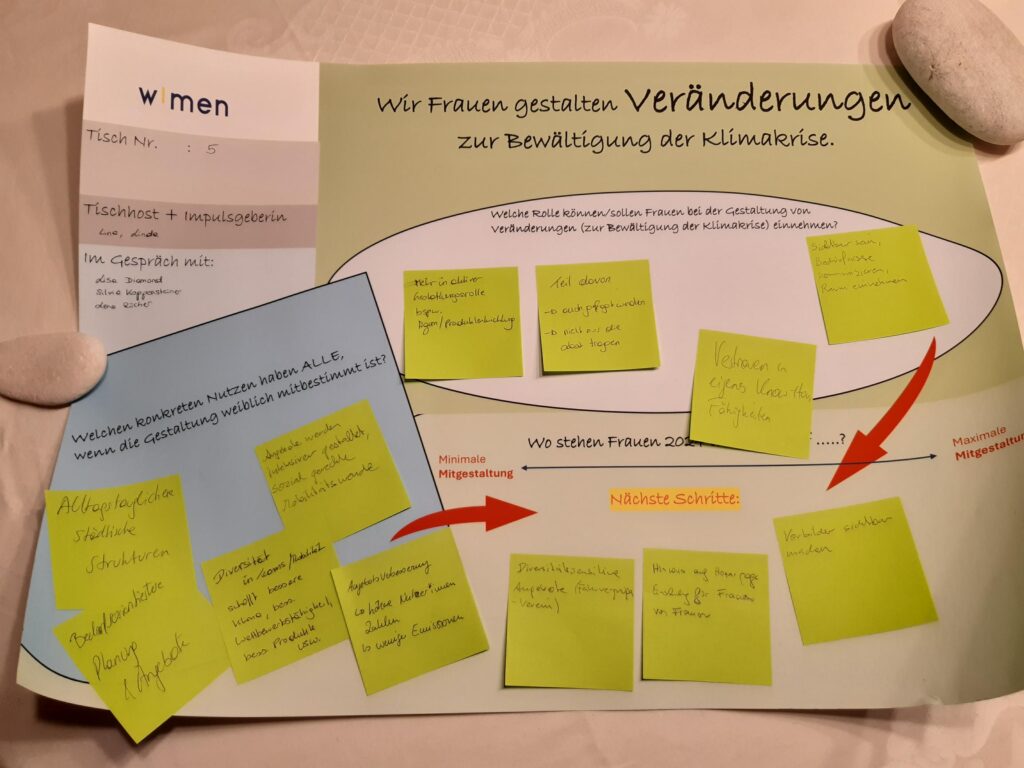 w|men
Tisch Nr. : 5
Tischhost + Impulsgeberin
Lina, Linda
Im Gespräch mit:
Lisa Diamond
Silvia Kappensteiner
Lena Rücher
Wir Frauen gestalten Veränderungen
zur Bewältigung der Klimakrise.
Welche Rolle können/sollen Frauen bei der Gestaltung von
Veränderungen (zur Bewältigung der Klimakrise) einnehmen?
Mehr in aktiver
Gestaltungsrolle
bspw.
/Produktentwicklung
Teil davon
auch gefragt werden
nicht nur die
tragen
Sichtbar sein,
Bedürfnisse
kommunizieren,
Raum einnehmen
Vertrauen in
eigens Know-How
Fähigkeiten
Welchen konkreten Nutzen haben ALLE,
wenn die Gestaltung weiblich mitbestimmt ist?
Angebote werden
inklusiver gestaltet,
sozial gerechte
Mobilitätswende
Alltagstauglichere
städtische
Strukturen
Bedarfsorientierte
Planung
& Angebote
Diversität
in Teams/Mobilität
schafft bessere
Klima, bess.
Wettbewerbsfähigkeit,
bess Produkte
usw.
Angebotsverbesserung
höhere Nutzer*innen
Zahlen
weniger Emissionen
Wo stehen Frauen 202
.....?
Minimale
Mitgestaltung
Maximale
Mitgestaltun
Nächste Schritte:
Diversitätssensitive
Angebote
-Verein)
Hinweis auf Homepage
für Frauen
von Frauen
Vorbilder sichtbar
machen